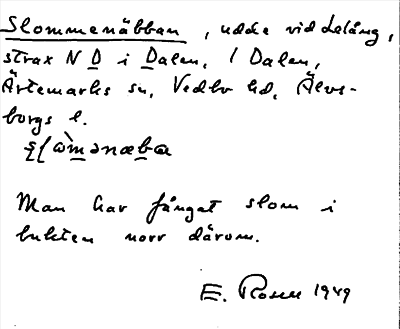 Slommenäbban, udde vid Lelång,
strax N D i Dalen, / Dalen,
Ärtemarks sn, Vedbo hd, Älvs-
borgs l.
Man har fångat slom i
bukten norr därom.
E. Rosell 1949